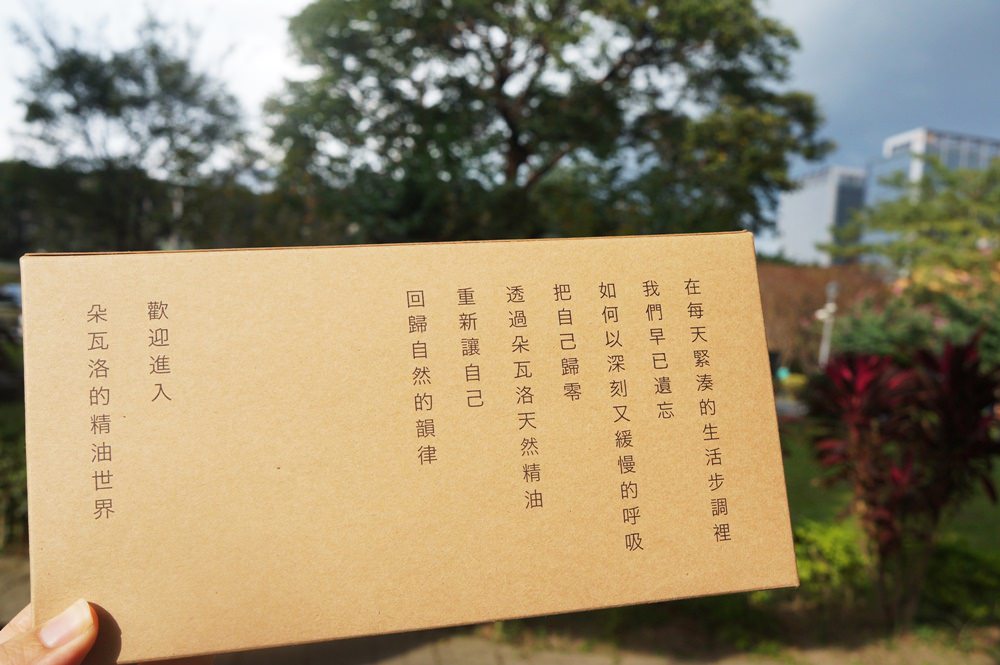 在每天緊湊的生活步調裡
我們早已遺忘
如何以深刻又緩慢的呼吸
把自己歸零
透過朵瓦洛天然精油
重新讓自己
回歸自然的韻律
歡迎進入
朵瓦洛的精油世界